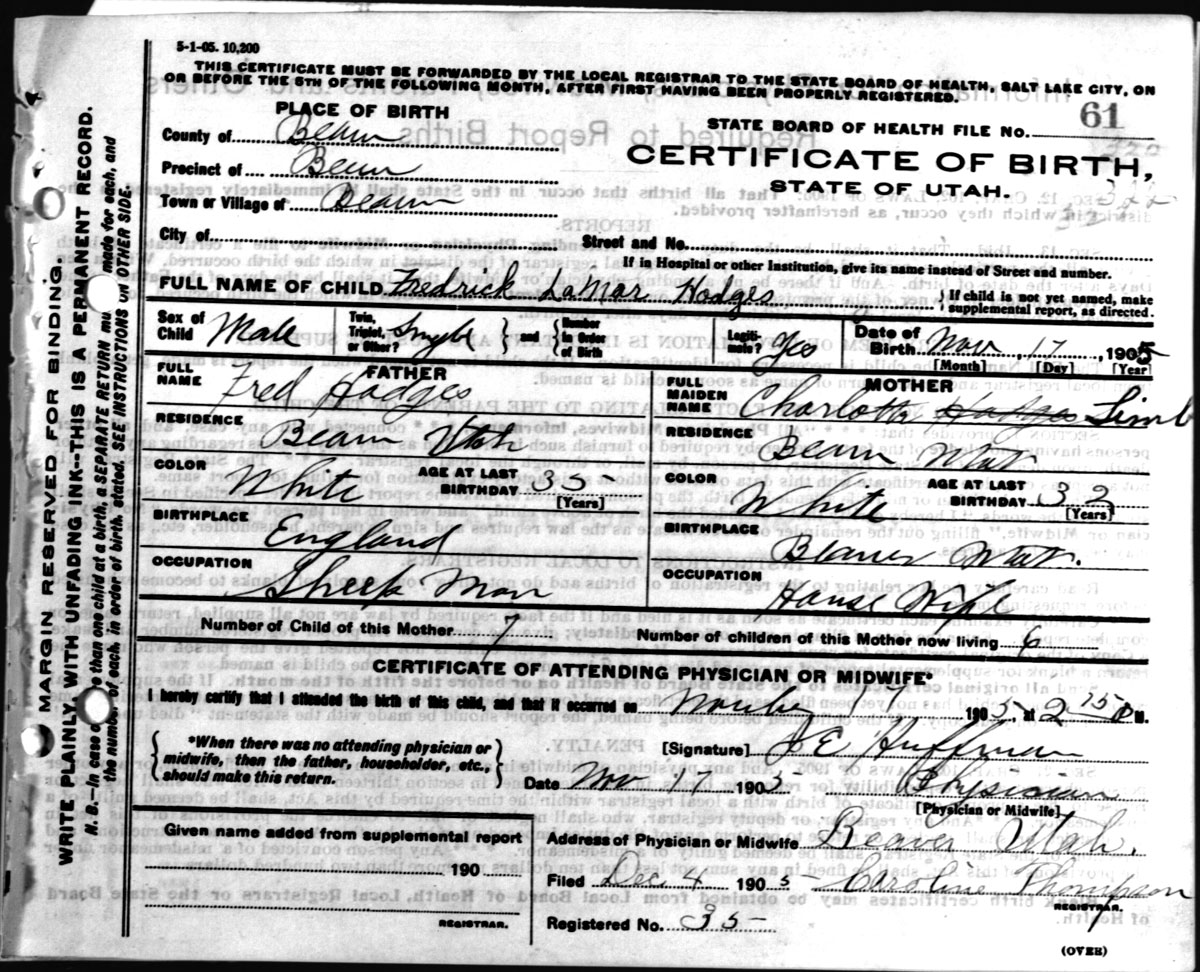 5-1-05. 10,200
THIS CERTIFICATE MUST BE FORWARDED BY THE LOCAL REGISTRAR TO THE STATE BOARD OF HEALTH, SALT LAKE CITY, ON
OR BEFORE THE 5TH OF THE FOLLOWING MONTH, AFTER FIRST HAVING BEEN PROPERLY REGISTERED.
PLACE OF BIRTH
County of Beaver
Precinct of Beaver
Town or Village of Beaver
City of
STATE BOARD OF HEALTH FILE NO. 61
CERTIFICATE OF BIRTH,
STATE OF UTAH.
322
Street and No.
If in Hospital or other Institution, give its name instead of Street and number.
FULL NAME OF CHILD Fredrick LaMar Hodges } If child is not yet named, make supplemental report, as directed.
Sex of Child Male Twin, Triplet, or Other? Single } and { Number in Order of Birth Legiti-mate? Yes Date of Birth Nov, 17, 1905
[Month] [Day] [Year]
FATHER
FULL NAME Fred Hodges
RESIDENCE Beaver Utah
COLOR White AGE AT LAST BIRTHDAY 35
[Years]
BIRTHPLACE England
OCCUPATION Sheep Man
MOTHER
FULL MAIDEN NAME Charlotte Hodges
RESIDENCE Beaver Utah
COLOR White AGE AT LAST BIRTHDAY 32
[Years]
BIRTHPLACE Beaver Utah.
OCCUPATION House Wife
Number of Child of this Mother 7 Number of children of this Mother now living 6
CERTIFICATE OF ATTENDING PHYSICIAN OR MIDWIFE*
I hereby certify that I attended the birth of this child, and that it occurred on 17 1905, at 2 15 M.
{ *When there was no attending physician or midwife, then the father, householder, etc., should make this return. }
[Signature] J E Huffman
Date Nov 17 1905 Physician
[Physician or Midwife]
Given name added from supplemental report
190
REGISTRAR.
Address of Physician or Midwife Beaver Utah.
Filed Dec 4 1905 Caroline Thompson
REGISTRAR.
Registered No. 35
(OVER)
MARGIN RESERVED FOR BINDING.
WRITE PLAINLY, WITH UNFADING INK---THIS IS A PERMANENT RECORD.
N. B.--In case of more than one child at a birth, a SEPARATE RETURN must be made for each, and
the number of each, in order of birth, stated. SEE INSTRUCTIONS ON OTHER SIDE.